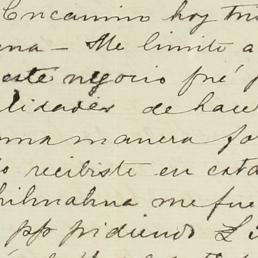 Encamino hoy tus
una - Me limito a
este negocio fué p
lidades de hace
una manera fo
o recibiste en esta
hihuahua me fue
pp pidiendo Li